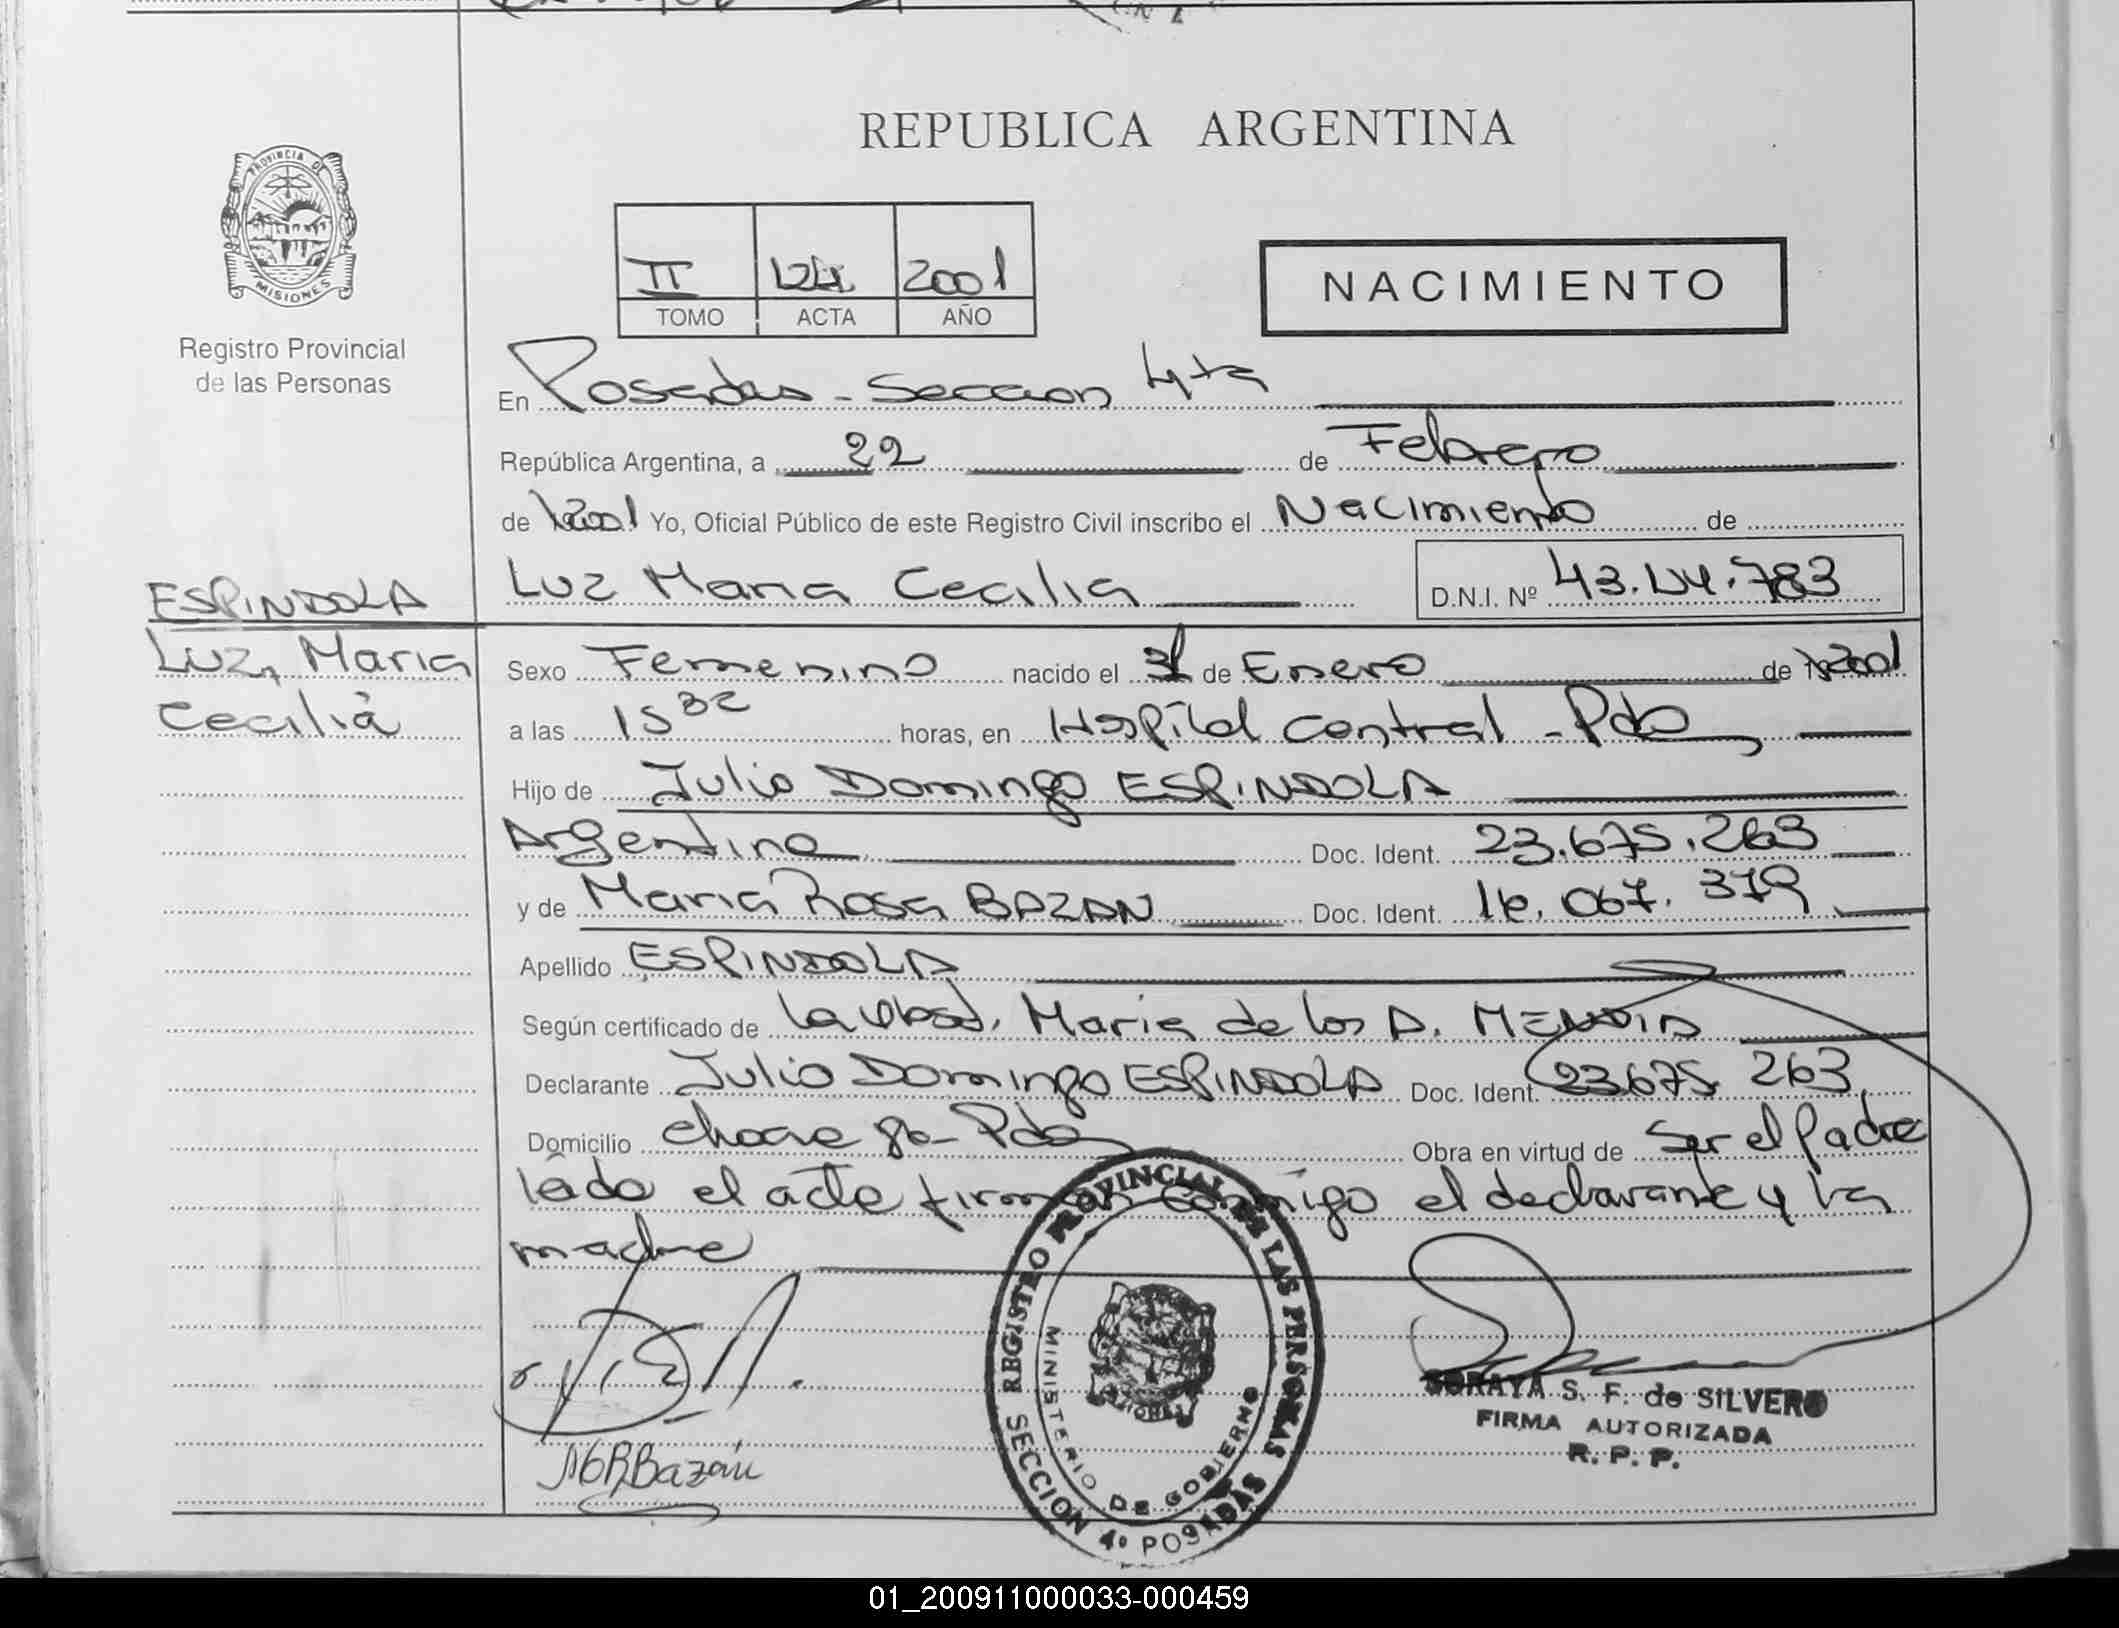 REPUBLICA ARGENTINA
PROVINCIA DE
MISIONES
Registro Provincial
de las Personas
II 2001
TOMO ACTA AÑO
NACIMIENTO
En Posadas - Seccion 4ta
República Argentina, a 22 de Febrero
de 2001 Yo, Oficial Público de este Registro Civil inscribo el Nacimiento de
Luz Maria Cecilia D.N.I. Nº
ESPINDOLA
Luz, Maria
Cecilia
Sexo Femenino nacido el 31 de Enero de 2001
a las 15 32 horas, en Hospital Central - Pdas
Hijo de Julio Domingo ESPINDOLA
Argentino Doc. Ident. 23.675.263
y de Maria Rosa BAZAN Doc. Ident. 16.067.379
Apellido ESPINDOLA
Según certificado de la Obst. Maria de los A.
Declarante Julio Domingo ESPINDOLA Doc. Ident. 23.675.263
Domicilio Obra en virtud de Ser el Padre
leido el acta firman conmigo el declarante y la
madre
MRBazán
REGISTRO PROVINCIAL DE LAS PERSONAS
MINISTERIO DE GOBIERNO
SECCION 4º POSADAS
SORAYA S. F. de SILVERO
FIRMA AUTORIZADA
R. P. P.
01_200911000033-000459